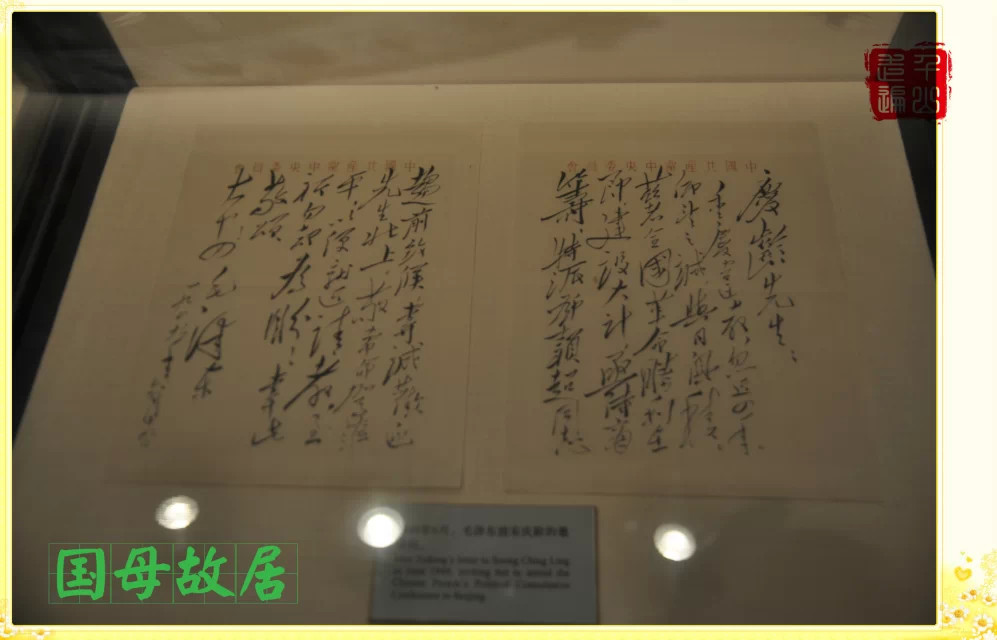 走遍千山
中國共產黨中央委員會
慶齡先生：
重慶違教忽近四年
仰望之誠與日俱積
茲者全國革命勝利在
即建設大計亟待商
籌、特派鄧穎超同志
中國共產黨中央委員會
趨前致候專誠歡迎
先生北上敬希命駕莅
平以便就近請教至
祈勿却為盼！專此
敬頌
大安！
毛澤東
一九四九年六月十九日
年6月，毛泽东致宋庆龄的邀
Mao Zedong's letter to Soong Ching Ling
in June 1949, inviting her to attend the
Chinese People's Political Consultative
Conference in Beiping.
国母故居